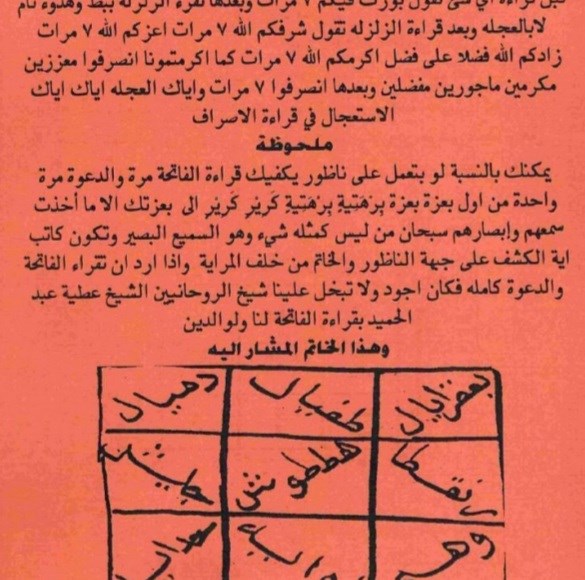 قبل قراءة اي شئ تقول بوركت فيكم ٧ مرات وبعدها تقرء الزلزله ببطء وهدوء تام
لابالعجله وبعد قراءة الزلزله تقول شرفكم الله ٧ مرات اعزكم الله ٧ مرات
زادكم الله فضلا على فضل اكرمكم الله ٧ مرات كما اكرمتمونا انصرفوا معززين
مكرمين ماجورين مفضلين وبعدها انصرفوا ٧ مرات واياك العجله اياك اياك
الاستعجال في قراءة الاصراف
ملحوظة
يمكنك بالنسبة لو بتعمل على ناظور يكفيك قراءة الفاتحة مرة والدعوة مرة
واحدة من اول بعزة بعزة برهتية برهتية كرير كرير الى بعزتك الا ما أخذت
سمعهم وإبصارهم سبحان من ليس كمثله شيء وهو السميع البصير وتكون كاتب
اية الكشف على جبهة الناظور والخاتم من خلف المراية واذا ارد ان تقراء الفاتحة
والدعوة كامله فكان اجود ولا تبخل علينا شيخ الروحانيين الشيخ عطية عبد
الحميد بقراءة الفاتحة لنا ولوالدين
وهذا الخاتم المشار اليه